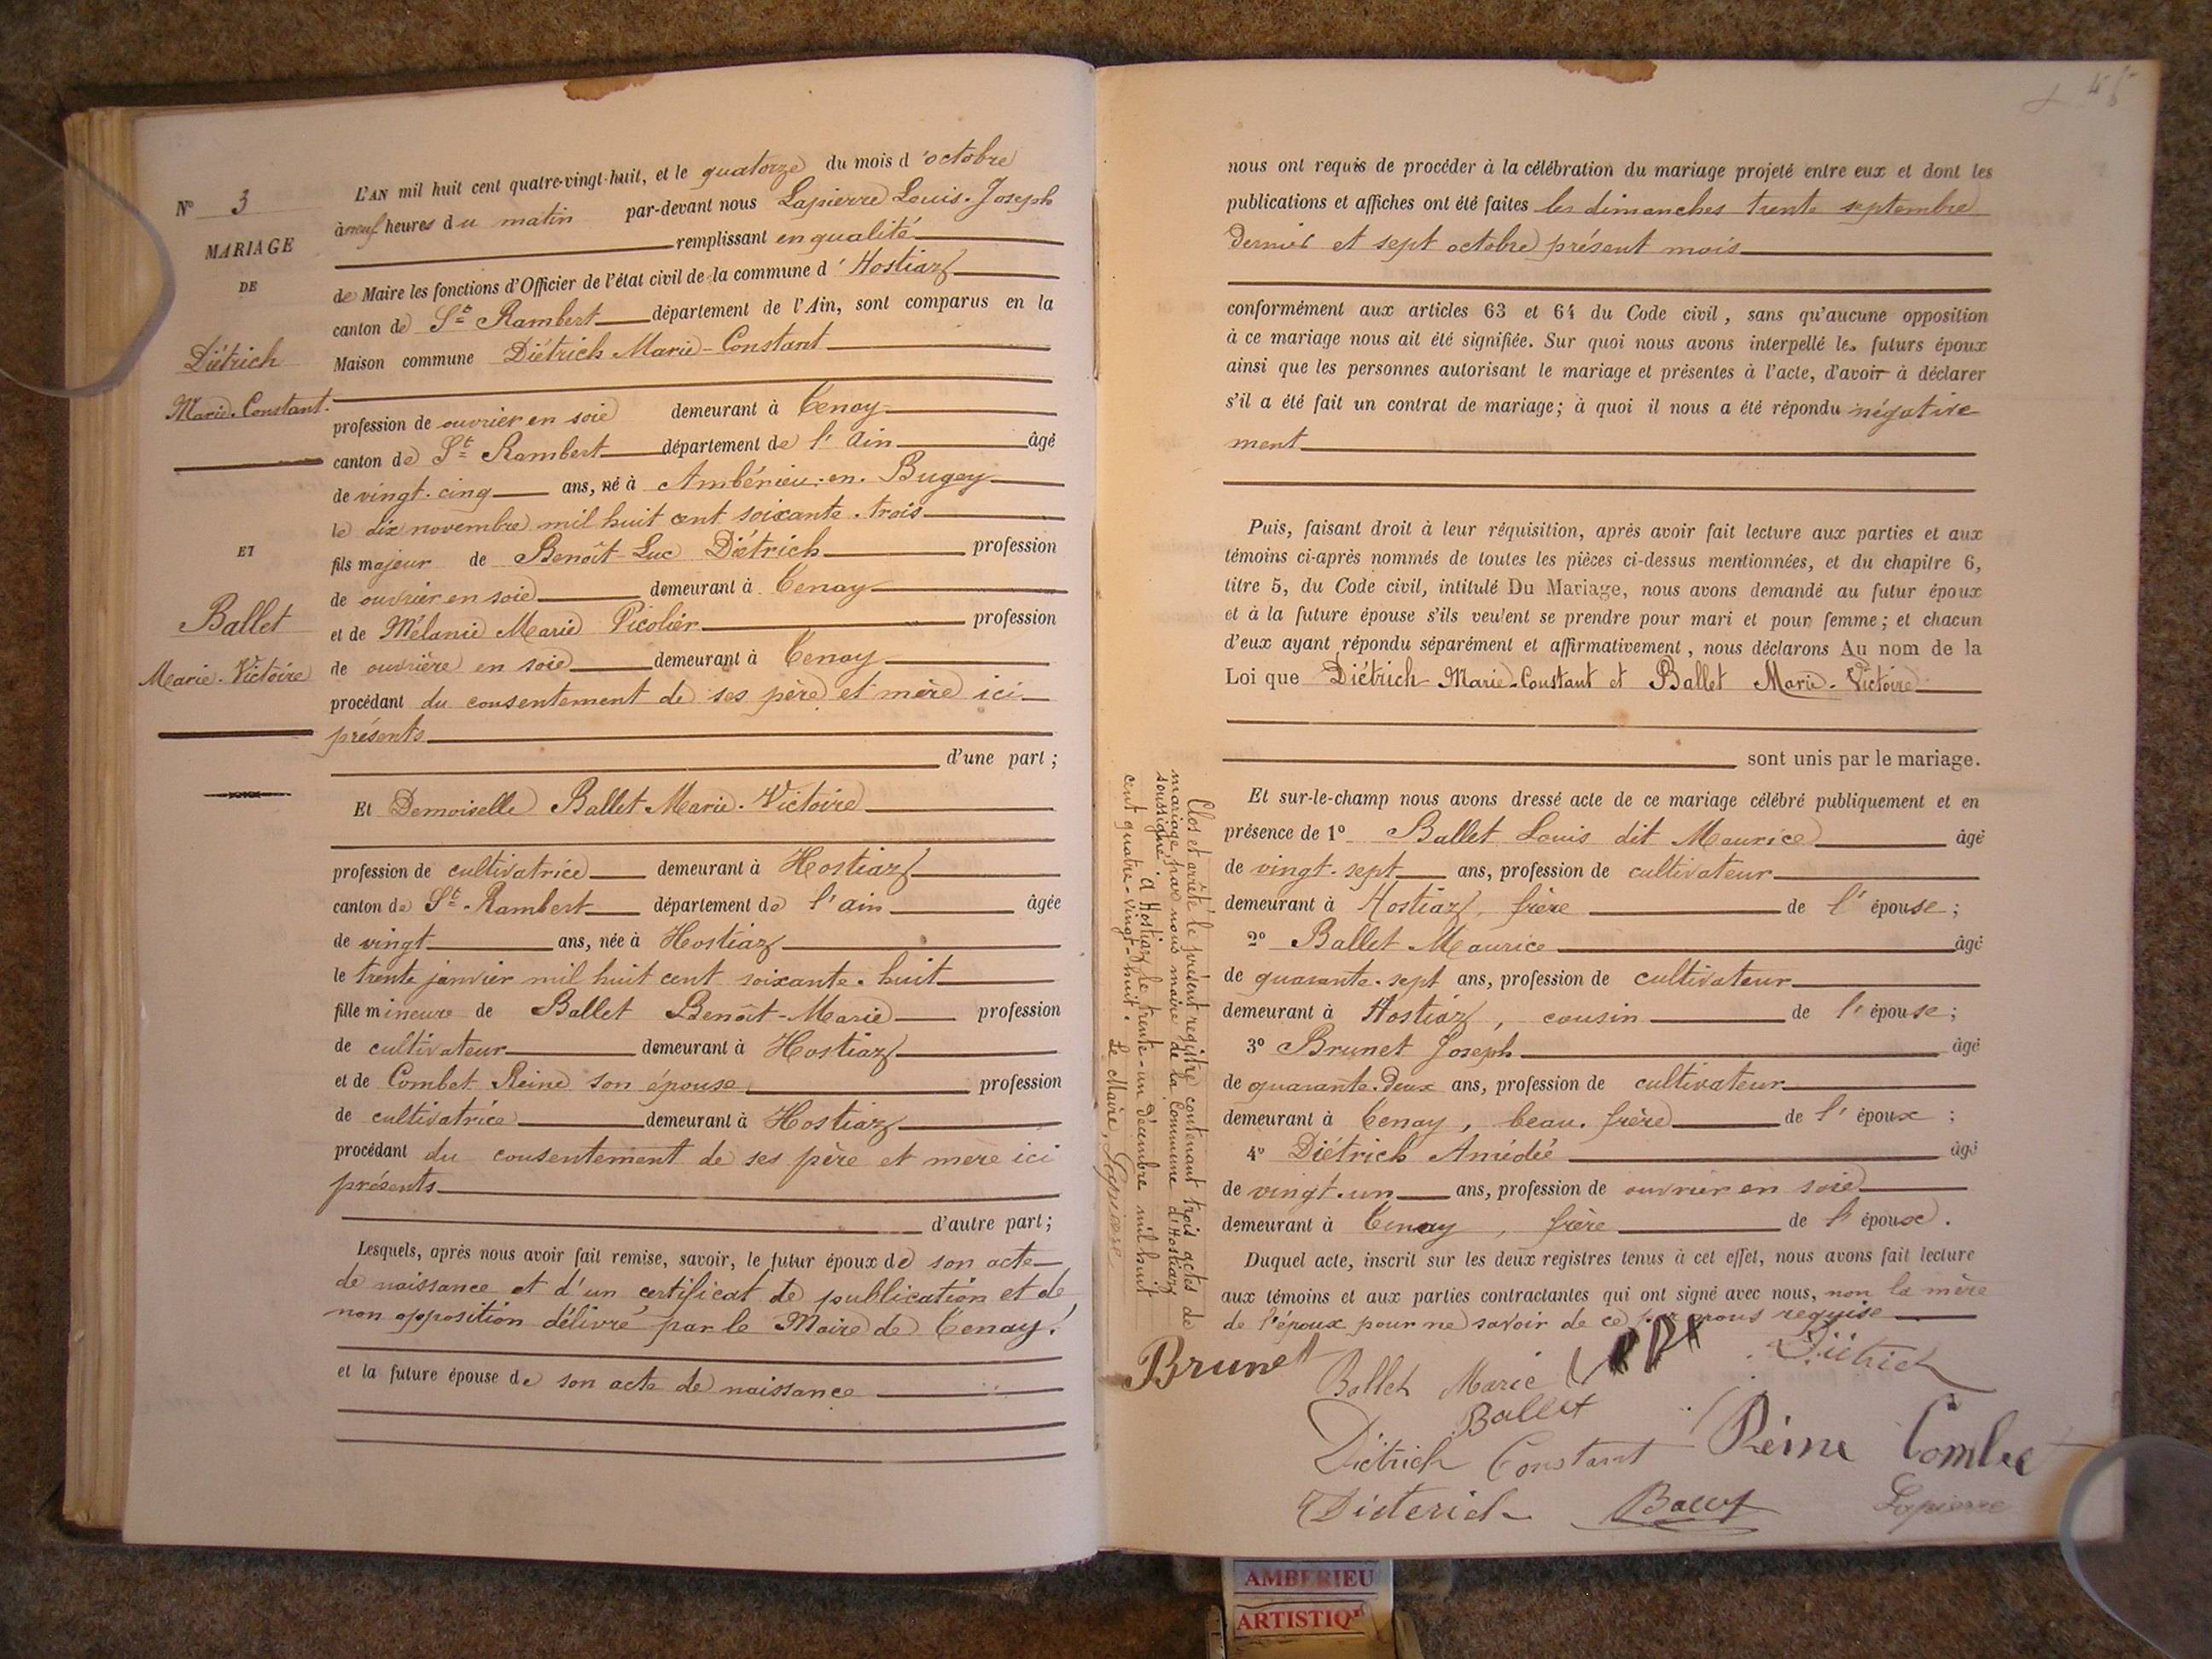 Nº 3
MARIAGE
DE
Diétrich
Marie-Constant.
ET
Ballet
Marie-Victoire
L'AN mil huit cent quatre-vingt-huit, et le quatorze du mois d'octobre
à neuf heures du matin par-devant nous Lapierre Louis-Joseph
remplissant en qualité
de Maire les fonctions d'Officier de l'état civil de la commune d'Hostiaz
canton de St Rambert département de l'Ain, sont comparus en la
Maison commune Diétrich Marie-Constant
profession de ouvrier en soie demeurant à Tenay
canton de St Rambert département de l'Ain âgé
de vingt-cinq ans, né à Ambérieu-en-Bugey
le dix novembre mil huit cent soixante-trois
fils majeur de Benoît-Luc Diétrich profession
de ouvrier en soie demeurant à Tenay
et de Mélanie Marie Picolier profession
de ouvrière en soie demeurant à Tenay
procédant du consentement de ses père et mère ici
présents
d'une part ;
Et Demoiselle Ballet Marie-Victoire
profession de cultivatrice demeurant à Hostiaz
canton de St-Rambert département de l'ain âgée
de vingt ans, née à Hostiaz
le trente janvier mil huit cent soixante-huit
fille mineure de Ballet Benoît-Marie profession
de cultivateur demeurant à Hostiaz
et de Combet Reine son épouse profession
de cultivatrice demeurant à Hostiaz
procédant du consentement de ses père et mère ici
présents
d'autre part ;
Lesquels, après nous avoir fait remise, savoir, le futur époux de son acte
de naissance et d'un certificat de publication et de
non opposition délivré par le Maire de Tenay.
et la future épouse de son acte de naissance
45
nous ont requis de procéder à la célébration du mariage projeté entre eux et dont les
publications et affiches ont été faites les dimanches trente septembre
dernier et sept octobre présent mois
conformément aux articles 63 et 64 du Code civil, sans qu'aucune opposition
à ce mariage nous ait été signifiée. Sur quoi nous avons interpellé les futurs époux
ainsi que les personnes autorisant le mariage et présentes à l'acte, d'avoir à déclarer
s'il a été fait un contrat de mariage ; à quoi il nous a été répondu négative
ment
Puis, faisant droit à leur réquisition, après avoir fait lecture aux parties et aux
témoins ci-après nommés de toutes les pièces ci-dessus mentionnées, et du chapitre 6,
titre 5, du Code civil, intitulé Du Mariage, nous avons demandé au futur époux
et à la future épouse s'ils veulent se prendre pour mari et pour femme ; et chacun
d'eux ayant répondu séparément et affirmativement, nous déclarons Au nom de la
Loi que Diétrich Marie-Constant et Ballet Marie-Victoire
sont unis par le mariage.
Et sur-le-champ nous avons dressé acte de ce mariage célébré publiquement et en
présence de 1º Ballet Louis dit Maurice âgé
de vingt-sept ans, profession de cultivateur
demeurant à Hostiaz, frère de l'épouse ;
2º Ballet Maurice âgé
de quarante-sept ans, profession de cultivateur
demeurant à Hostiaz, cousin de l'épouse ;
3º Brunet Joseph âgé
de quarante-deux ans, profession de cultivateur
demeurant à Tenay, beau-frère de l'époux ;
4º Diétrich Amédée âgé
de vingt-un ans, profession de ouvrier en soie
demeurant à Tenay, frère de l'époux.
Duquel acte, inscrit sur les deux registres tenus à cet effet, nous avons fait lecture
aux témoins et aux parties contractantes qui ont signé avec nous, non la mère
de l'époux pour ne savoir de ce par nous requise
Brunet
Ballet Marie
Diétrich
Ballet
Dietrich Constant
Reine Combet
Dieterich
Ballet
Lapierre
Clos et arrêté le présent registre contenant trois actes de
mariage, par nous maire de la Commune d'Hostiaz
soussigné. A Hostiaz le trente-un décembre mil huit
cent quatre-vingt-huit. Le Maire, Lapierre
AMBERIEU
ARTISTIQ